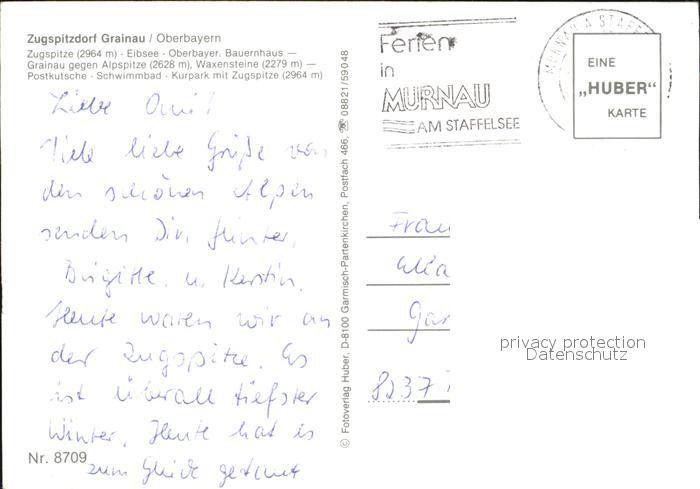 Zugspitzdorf Grainau / Oberbayern
Zugspitze (2964 m) - Eibsee - Oberbayer. Bauernhaus —
Grainau gegen Alpspitze (2628 m), Waxensteine (2279 m) —
Postkutsche - Schwimmbad - Kurpark mit Zugspitze (2964 m)
Liebe Omi!
Viele liebe Grüße von
den schönen Alpen
senden Dir, Günter,
Birgitte, u. Kerstin.
Heute waren wir an
der Zugspitze. Es
ist überall tiefster
Winter. Heute hat es
zum Glück getaut
Nr. 8709
© Fotoverlag Huber, D-8100 Garmisch-Partenkirchen, Postfach 466, ☏ 08821/59048
Ferien
in
MURNAU
AM STAFFELSEE
MURNAU A STAFF
EINE
„HUBER"
KARTE
Frau
Gar
8237
privacy protection
Datenschutz